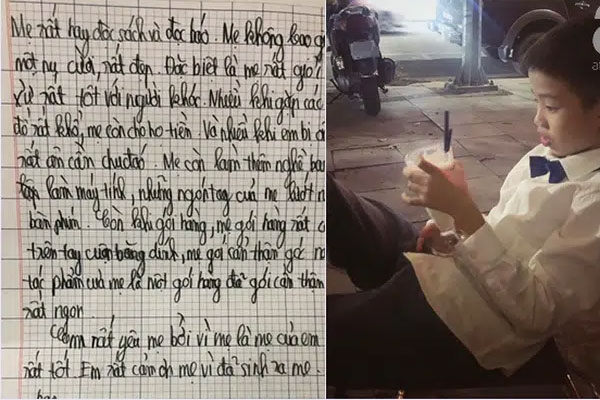 Mẹ rất hay đọc sách và đọc báo. Mẹ không bao g
một nụ cười, rất đẹp. Đặc biệt là mẹ rất giỏi
xử rất tốt với người khác. Nhiều khi gặp các
đó rất khổ, mẹ còn cho họ tiền. Và nhiều khi em bị
rất ân cần chu đáo. Mẹ còn làm thêm nghề ba
làm máy tính, những ngón tay của mẹ lướt n
bàn phím. Còn khi gói hàng, mẹ gói hàng rất c
trên tay cuộn băng dính, mẹ gói cẩn thận góc n
tác phẩm của mẹ là một gói hàng đã gói cẩn thận
rất ngon.
Em rất yêu mẹ bởi vì mẹ là mẹ của em
rất tốt. Em rất cảm ơn mẹ vì đã sinh ra mẹ.